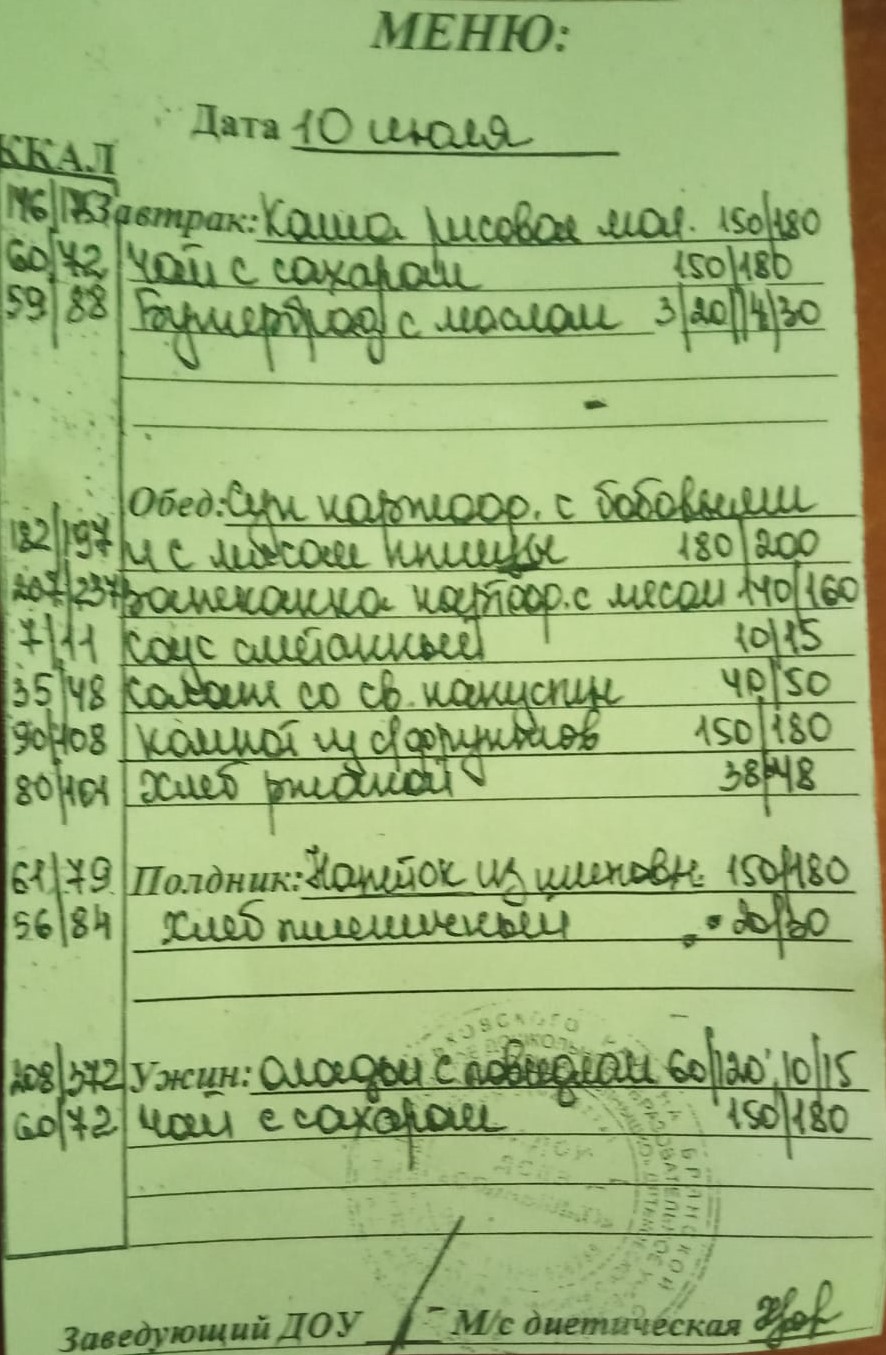 МЕНЮ:
Дата 10 июля
ККАЛ
146/175 Завтрак: Каша рисовая мол. 150/180
60/72 Чай с сахаром 150/180
59/88 Бутерброд с маслом 3/20//4/30
Обед: Суп картоф. с бобовыми
182/197 и с мясом птицы 180/200
207/237 Запеканка картоф. с мясом 140/160
7/11 Соус сметанный 10/15
35/48 Салат со св. капусты 40/50
90/108 Компот из с/фруктов 150/180
80/101 Хлеб ржаной 38/48
61/79 Полдник: Напиток из шиповн. 150/180
56/84 Хлеб пшеничный 20/30
208/372 Ужин: Оладьи с повидлом 60/120, 10/15
60/72 Чай с сахаром 150/180
Заведующий ДОУ М/с диетическая